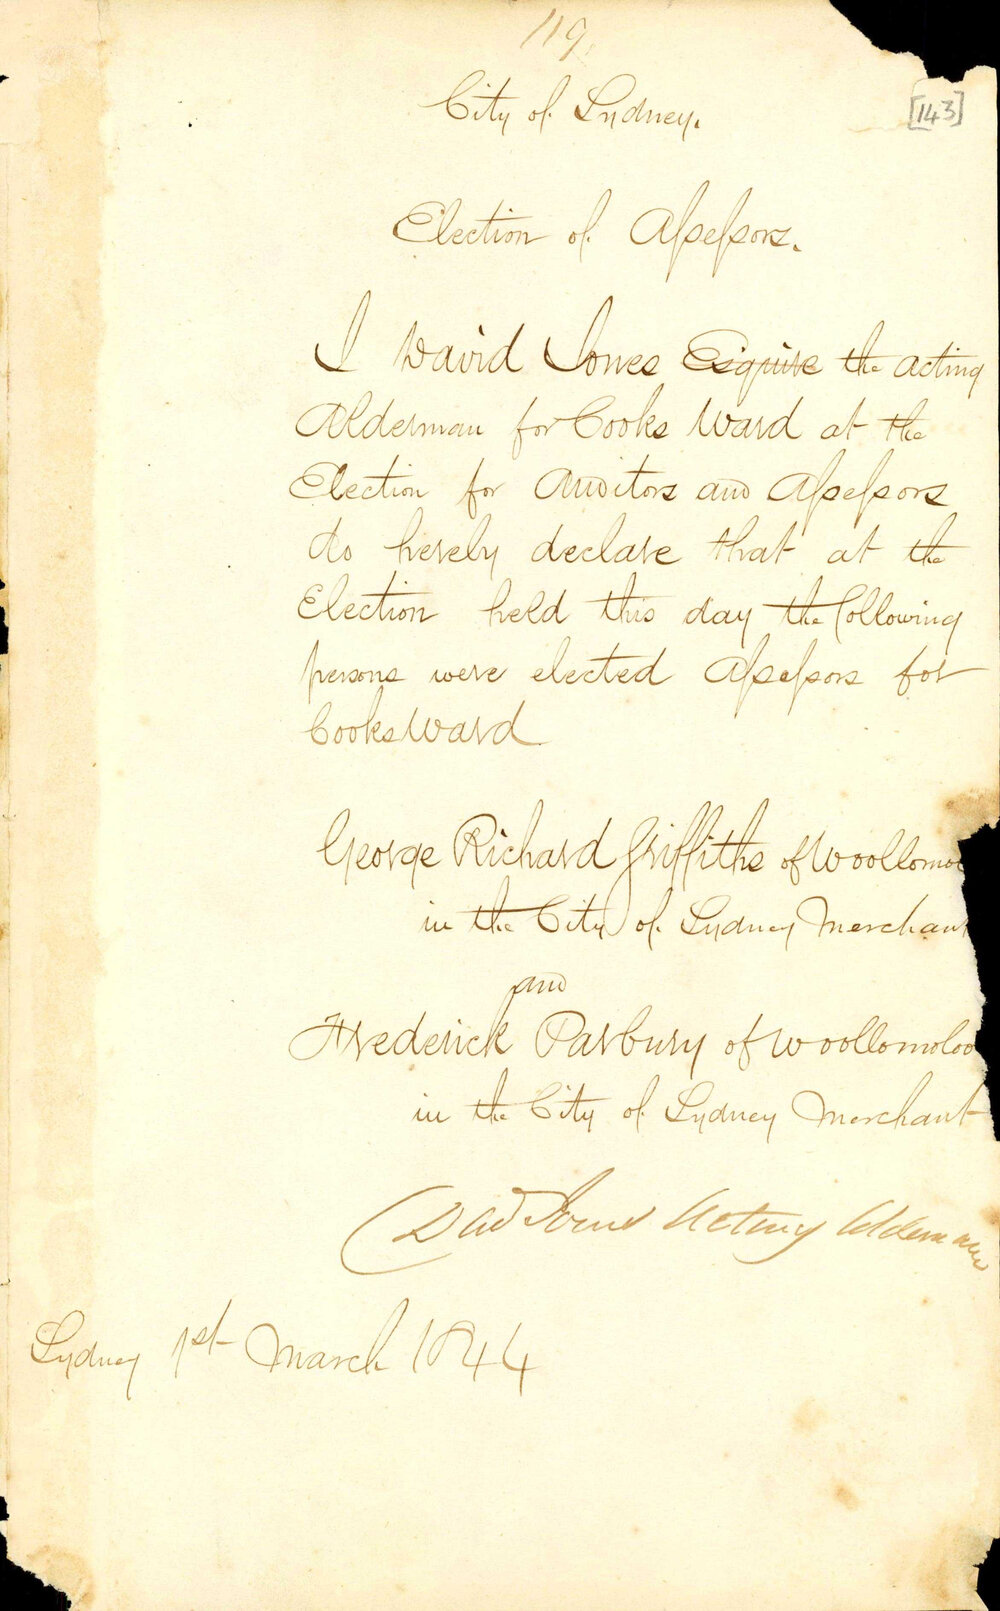 119.
[143]
City of Sydney.
Election of Assessors.
I David Jones Esquire the acting
Alderman for Cooks Ward at the
Election for Auditors and Assessors
do hereby declare that at the
Election held this day the following
persons were elected Assessors for
Cooks Ward
George Richard Griffiths of Woollomoo
in the City of Sydney Merchant
and
Frederick Parbury of Woollomoloo
in the City of Sydney Merchant
David Jones Acting Alderman
Sydney 1st March 1844